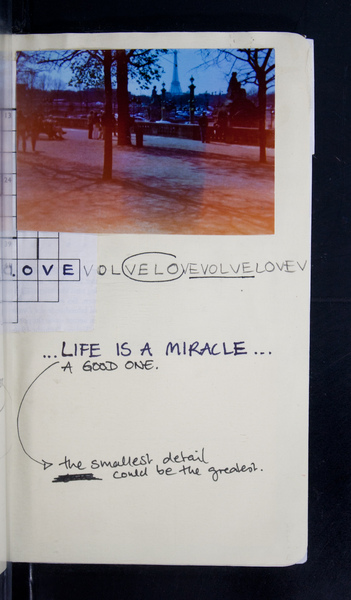 LOVEVOLVELOVEVOLVELOVEV
...LIFE IS A MIRACLE...
A GOOD ONE.
the smallest detail
could be the greatest.